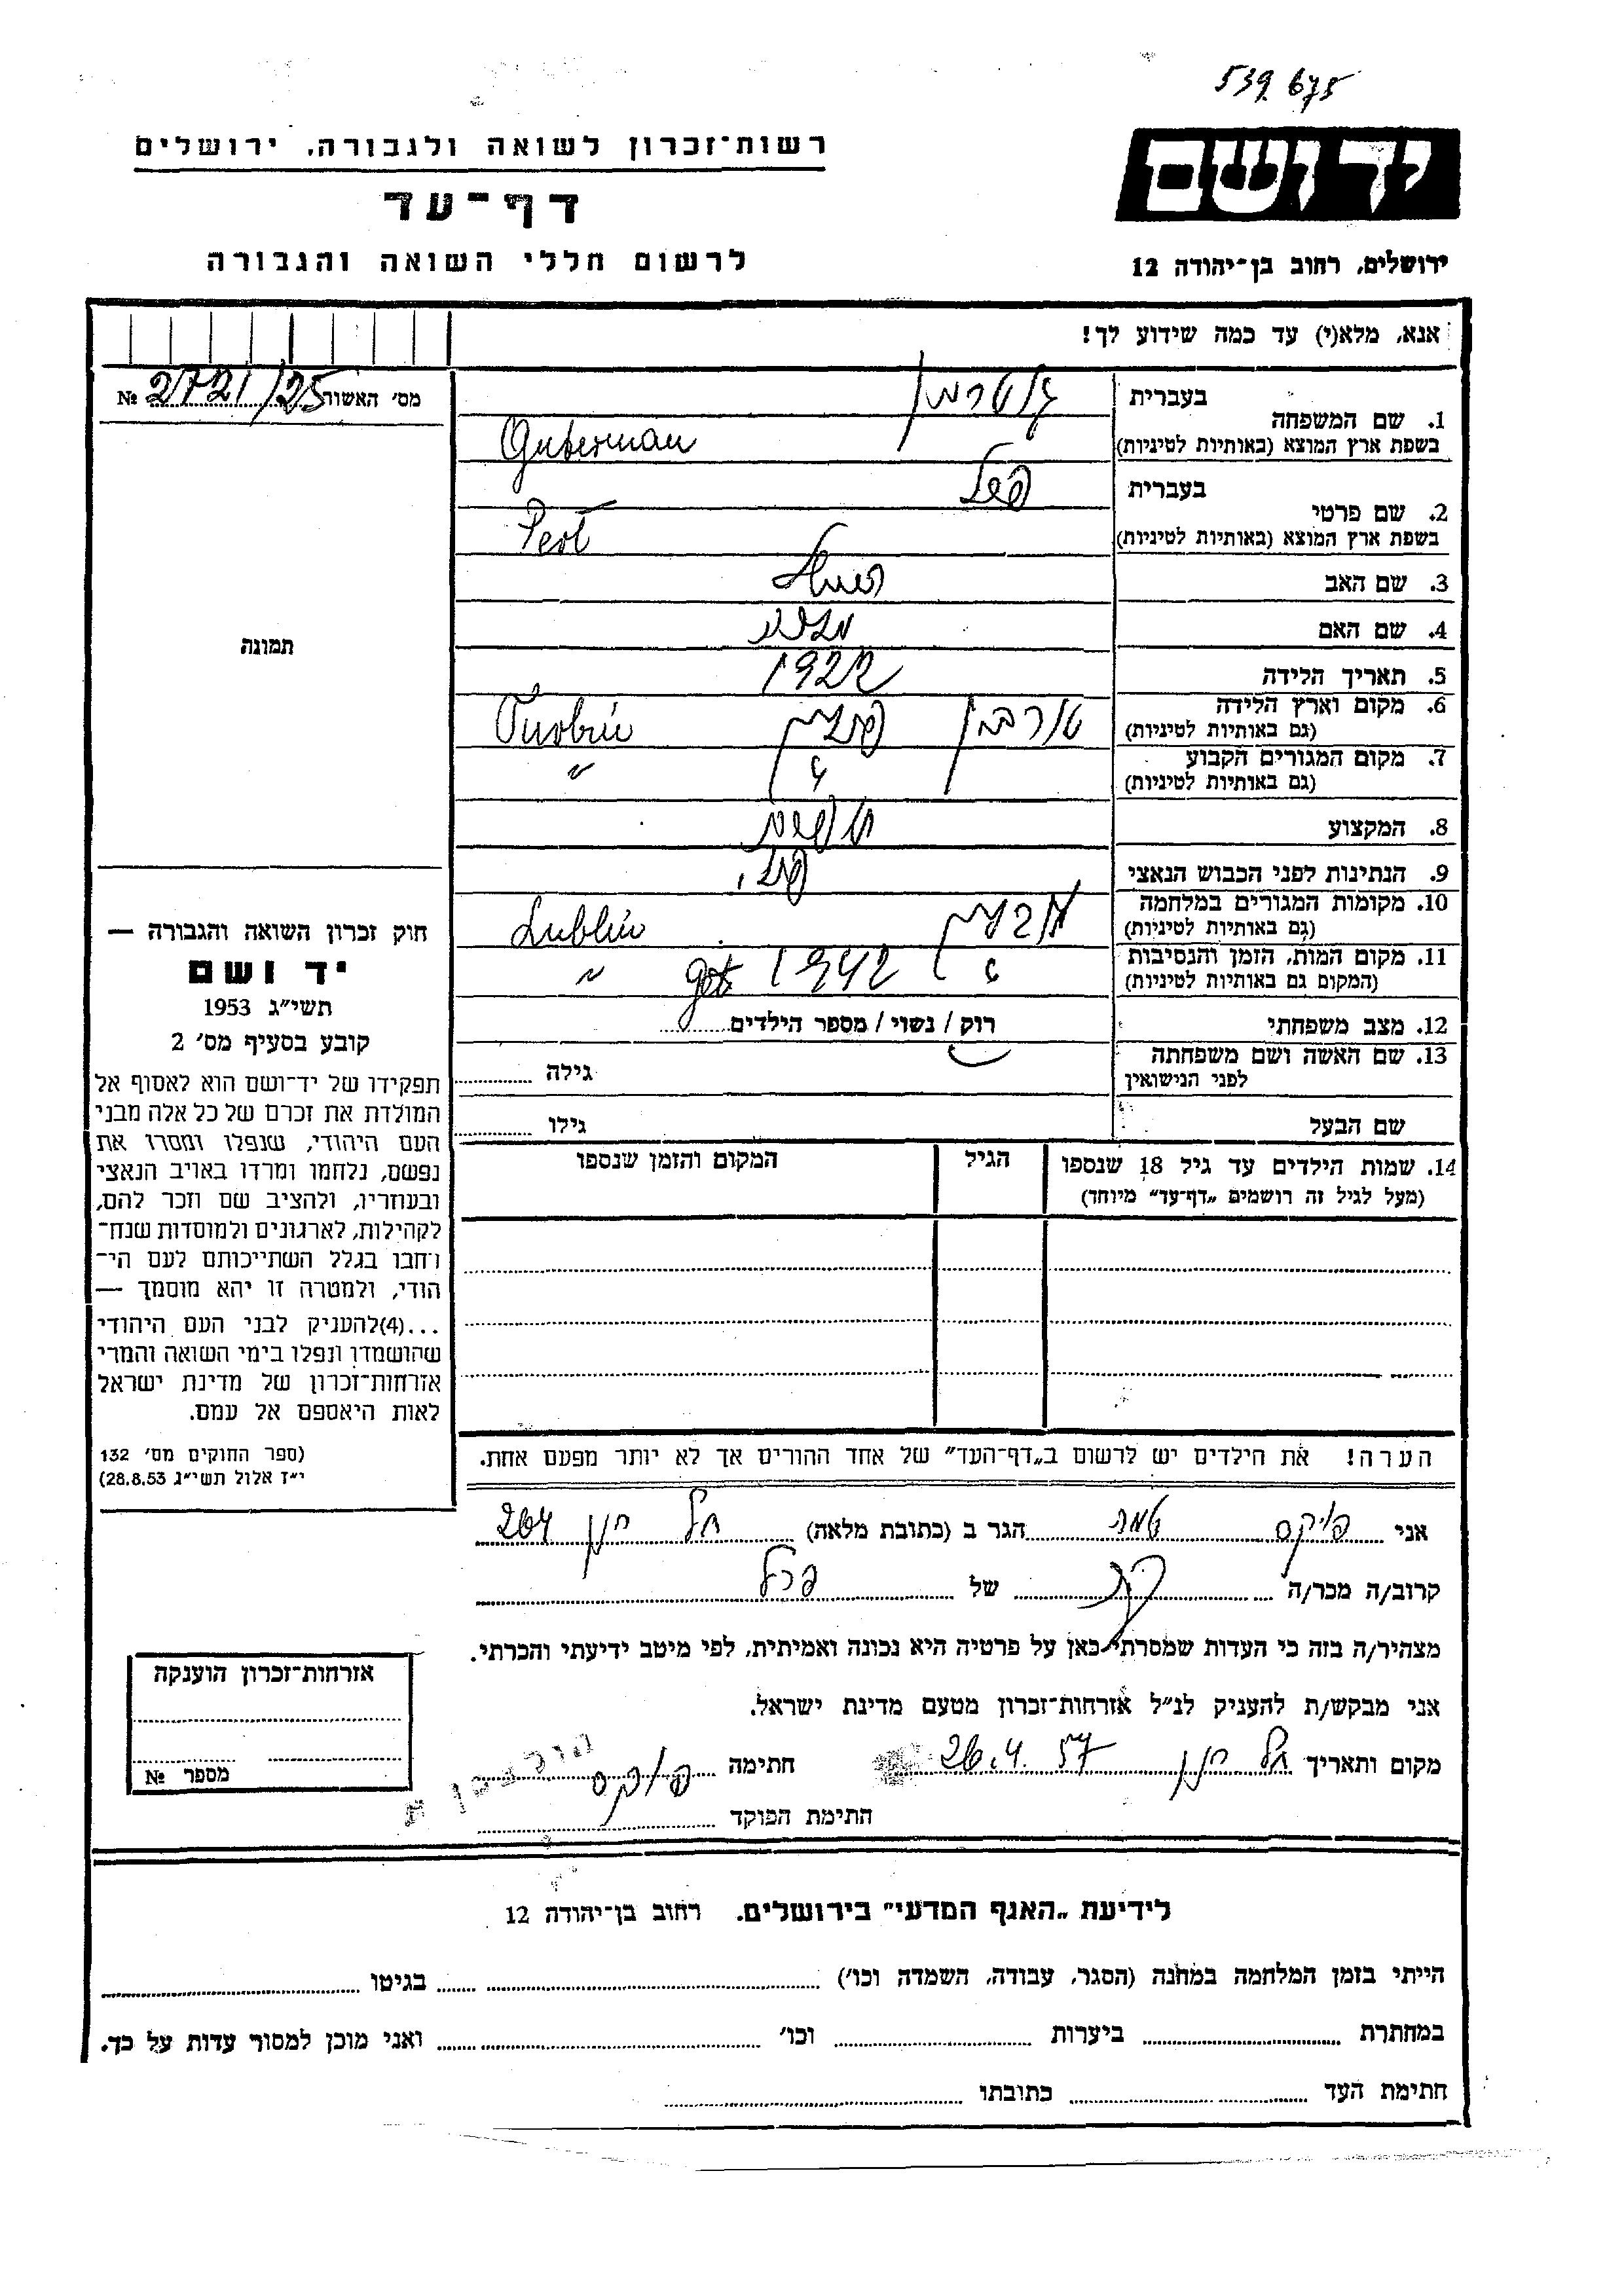 539.675
יד ושם
ירושלים, רחוב בן־יהודה 12
רשות־זכרון לשואה ולגבורה, ירושלים
דף־עד
לרשום חללי השואה והגבורה
אנא, מלא(י) עד כמה שידוע לך!
מס׳ האשור 2721/25 №
תמונה
בעברית
1. שם המשפחה
בשפת ארץ המוצא (באותיות לטיניות) Guterman
בעברית
2. שם פרטי
בשפת ארץ המוצא (באותיות לטיניות) Perl
3. שם האב
4. שם האם
5. תאריך הלידה 1922
6. מקום וארץ הלידה טורבין פולין Turbin
(גם באותיות לטיניות)
7. מקום המגורים הקבוע " "
(גם באותיות לטיניות)
8. המקצוע
9. הנתינות לפני הכבוש הנאצי פול.
10. מקומות המגורים במלחמה לובלין Lublin
(גם באותיות לטיניות)
11. מקום המות, הזמן והנסיבות " 1942 "
(המקום גם באותיות לטיניות)
12. מצב משפחתי רוק / נשוי / מספר הילדים
13. שם האשה ושם משפחתה
לפני הנישואין גילה
שם הבעל גילו
14. שמות הילדים עד גיל 18 שנספו הגיל המקום והזמן שנספו
(מעל לגיל זה רושמים „דף־עד״ מיוחד)
חוק זכרון השואה והגבורה —
יד ושם
תשי״ג 1953
קובע בסעיף מס׳ 2
תפקידו של יד־ושם הוא לאסוף אל
המולדת את זכרם של כל אלה מבני
העם היהודי, שנפלו ומסרו את
נפשם, נלחמו ומרדו באויב הנאצי
ובעוזריו, ולהציב שם וזכר להם,
לקהילות, לארגונים ולמוסדות שנח־
רחבו בגלל השתייכותם לעם הי־
הודי, ולמטרה זו יהא מוסמך —
...(4)להעניק לבני העם היהודי
שהושמדו ונפלו בימי השואה והמרי
אזרחות־זכרון של מדינת ישראל
לאות היאספם אל עמם.
(ספר החוקים מס׳ 132
י״ז אלול תשי״ג 28.8.53)
הערה! את הילדים יש לרשום ב„דף־העד״ של אחד ההורים אך לא יותר מפעם אחת.
אני פוקס הגר ב (כתובת מלאה) תל חנן 264
קרוב/ה מכר/ה של פרל
מצהיר/ה בזה כי העדות שמסרתי כאן על פרטיה היא נכונה ואמיתית, לפי מיטב ידיעתי והכרתי.
אני מבקש/ת להעניק לנ״ל אזרחות־זכרון מטעם מדינת ישראל.
מקום ותאריך תל חנן 26.4.57 חתימה פוקס
חתימת הפוקד
אזרחות־זכרון הוענקה
מספר №
לידיעת „האגף המדעי״ בירושלים. רחוב בן־יהודה 12
הייתי בזמן המלחמה במחנה (הסגר, עבודה, השמדה וכו׳) בגיטו
במחתרת ביערות וכו׳ ואני מוכן למסור עדות על כך.
חתימת העד כתובתו